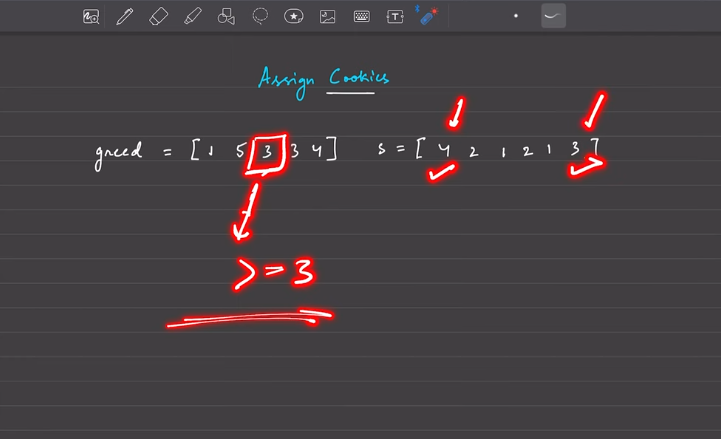 Assign Cookies
greed = [ 1 5 3 3 4 ] s = [ 4 2 1 2 1 3 ]
>= 3